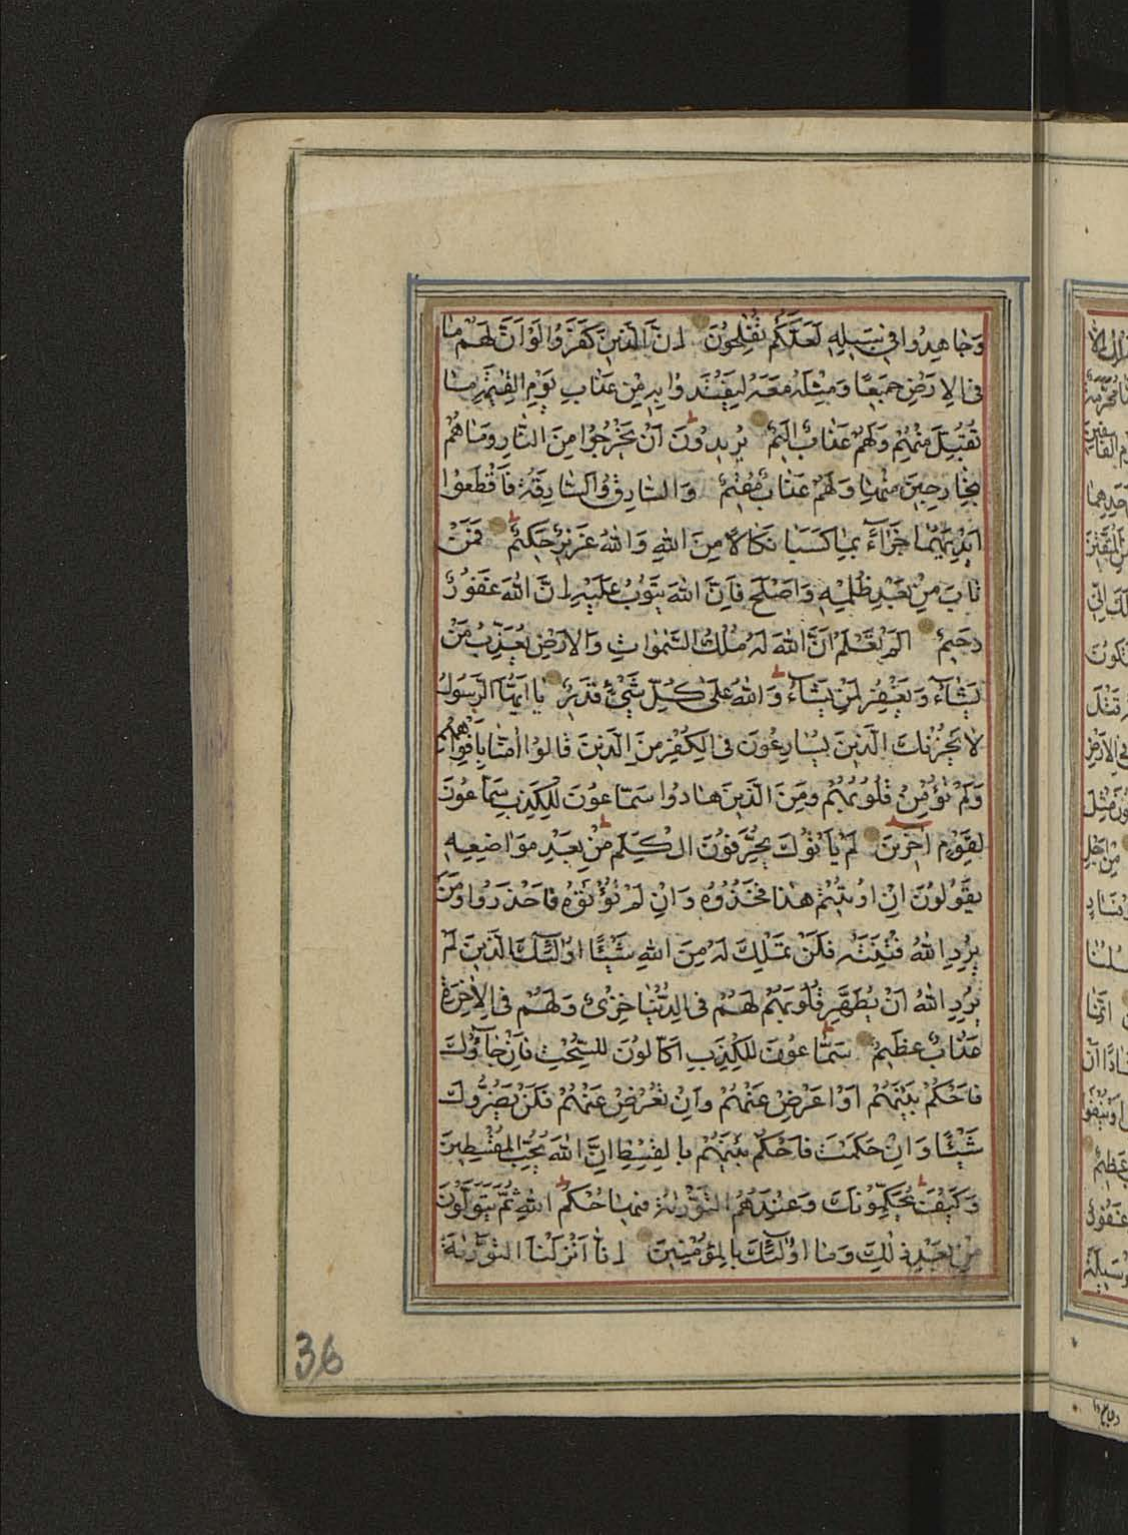 وَجَاهِدُوا فِي سَبِيلِهِ لَعَلَّكُمْ تُفْلِحُونَ اِنَّ الَّذِينَ كَفَرُوا لَوْ اَنَّ لَهُمْ مَا
فِي الْاَرْضِ جَمِيعًا وَمِثْلَهُ مَعَهُ لِيَفْتَدُوا بِهِ مِنْ عَذَابِ يَوْمِ الْقِيٰمَةِ مَا
تُقُبِّلَ مِنْهُمْ وَلَهُمْ عَذَابٌ اَلِيمٌ يُرِيدُونَ اَنْ يَخْرُجُوا مِنَ النَّارِ وَمَا هُمْ
بِخَارِجِينَ مِنْهَا وَلَهُمْ عَذَابٌ مُقِيمٌ وَالسَّارِقُ وَالسَّارِقَةُ فَاقْطَعُوا
اَيْدِيَهُمَا جَزَاءً بِمَا كَسَبَا نَكَالًا مِنَ اللهِ وَاللهُ عَزِيزٌ حَكِيمٌ فَمَنْ
تَابَ مِنْ بَعْدِ ظُلْمِهِ وَاَصْلَحَ فَاِنَّ اللهَ يَتُوبُ عَلَيْهِ اِنَّ اللهَ غَفُورٌ
رَحِيمٌ اَلَمْ تَعْلَمْ اَنَّ اللهَ لَهُ مُلْكُ السَّمٰوَاتِ وَالْاَرْضِ يُعَذِّبُ مَنْ
يَشَاءُ وَيَغْفِرُ لِمَنْ يَشَاءُ وَاللهُ عَلٰى كُلِّ شَيْءٍ قَدِيرٌ يَا اَيُّهَا الرَّسُولُ
لَا يَحْزُنْكَ الَّذِينَ يُسَارِعُونَ فِي الْكُفْرِ مِنَ الَّذِينَ قَالُوا اٰمَنَّا بِاَفْوَاهِهِمْ
وَلَمْ تُؤْمِنْ قُلُوبُهُمْ وَمِنَ الَّذِينَ هَادُوا سَمَّاعُونَ لِلْكَذِبِ سَمَّاعُونَ
لِقَوْمٍ اٰخَرِينَ لَمْ يَأْتُوكَ يُحَرِّفُونَ الْكَلِمَ مِنْ بَعْدِ مَوَاضِعِهِ
يَقُولُونَ اِنْ اُوتِيتُمْ هٰذَا فَخُذُوهُ وَاِنْ لَمْ تُؤْتَوْهُ فَاحْذَرُوا وَمَنْ
يُرِدِ اللهُ فِتْنَتَهُ فَلَنْ تَمْلِكَ لَهُ مِنَ اللهِ شَيْئًا اُولٰئِكَ الَّذِينَ لَمْ
يُرِدِ اللهُ اَنْ يُطَهِّرَ قُلُوبَهُمْ لَهُمْ فِي الدُّنْيَا خِزْيٌ وَلَهُمْ فِي الْاٰخِرَةِ
عَذَابٌ عَظِيمٌ سَمَّاعُونَ لِلْكَذِبِ اَكَّالُونَ لِلسُّحْتِ فَاِنْ جَاؤُكَ
فَاحْكُمْ بَيْنَهُمْ اَوْ اَعْرِضْ عَنْهُمْ وَاِنْ تُعْرِضْ عَنْهُمْ فَلَنْ يَضُرُّوكَ
شَيْئًا وَاِنْ حَكَمْتَ فَاحْكُمْ بَيْنَهُمْ بِالْقِسْطِ اِنَّ اللهَ يُحِبُّ الْمُقْسِطِينَ
وَكَيْفَ يُحَكِّمُونَكَ وَعِنْدَهُمُ التَّوْرٰيةُ فِيهَا حُكْمُ اللهِ ثُمَّ يَتَوَلَّوْنَ
مِنْ بَعْدِ ذٰلِكَ وَمَا اُولٰئِكَ بِالْمُؤْمِنِينَ اِنَّا اَنْزَلْنَا التَّوْرٰيةَ
36